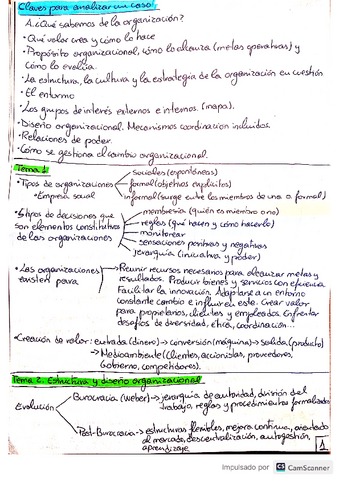 Claves para analizar un caso
A. ¿Qué sabemos de la organización?
• Qué valor crea y cómo lo hace
• Propósito organizacional, cómo lo alcanza (metas operativas) y
cómo lo evalúa.
• La estructura, la cultura y la estrategia de la organización en cuestión
• El entorno
• Los grupos de interés externos e internos. (mapa).
• Diseño organizacional. Mecanismos coordinación incluidos.
• Relaciones de poder.
• Cómo se gestiona el cambio organizacional.
Tema 1
• Tipos de organizaciones
sociales (espontáneas)
formal (objetivos explícitos)
informal (surge entre los miembros de una o. formal)
• Empresa social
• 5 tipos de decisiones que
son elementos constitutivos
de las organizaciones
membresía (quién es miembro o no)
reglas (qué hacen y cómo hacerlo)
monitorear
sensaciones positivas y negativas
jerarquía (iniciativa y poder)
• Las organizaciones
existen para
→ Reunir recursos necesarios para alcanzar metas y
resultados. Producir bienes y servicios con eficiencia
Facilitar la innovación. Adaptarse a un entorno
constante cambio e influir en este. Crear valor
para propietarios, clientes y empleados. Enfrentar
desafíos de diversidad, ética, coordinación...
• Creación de valor: entrada (dinero) → conversión (máquina) → salida (producto)
→ Medioambiente (Clientes, accionistas, proveedores,
Gobierno, competidores).
Tema 2. Estructura y diseño organizacional
Evolución
Burocracia (Weber) → jerarquía de autoridad, división del
trabajo, reglas y procedimientos formalizados
Post-Burocracia → estructuras flexibles, mejora continua, orientado
al mercado, descentralización, autogestión,
aprendizaje
1
Impulsado por CS CamScanner